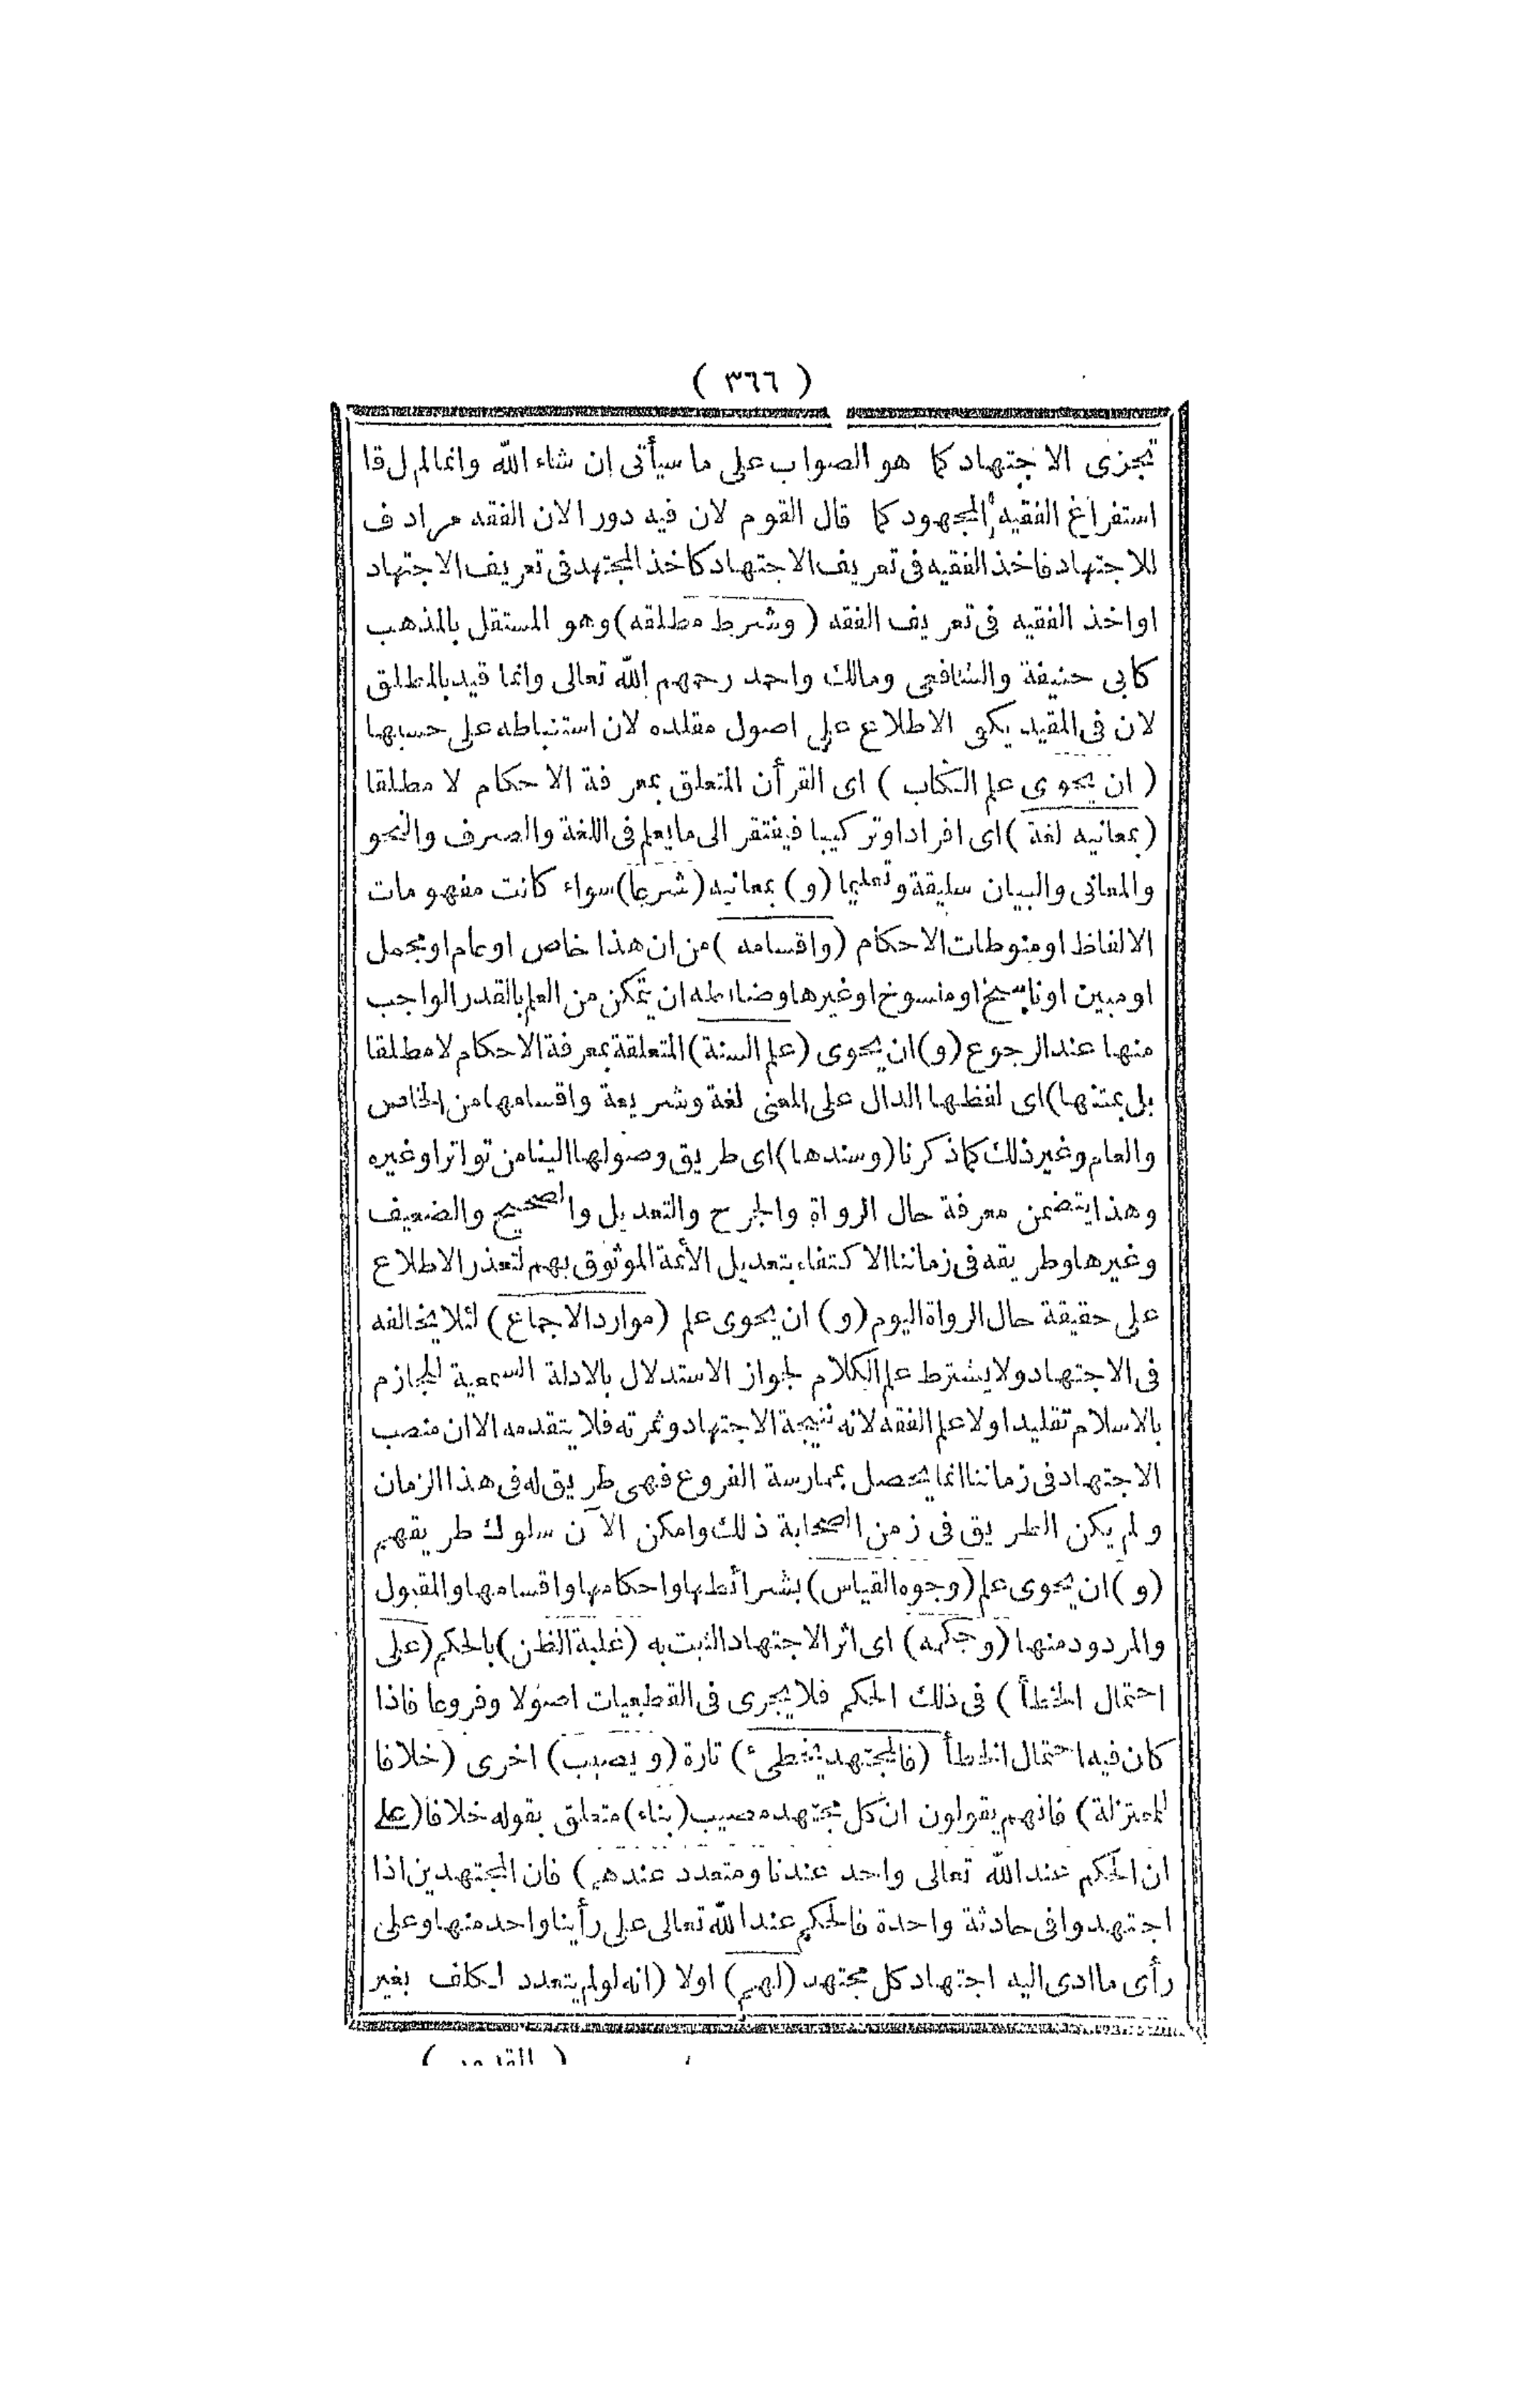 ( ٣٦٦ )
تجزى الاجتهاد كما هو الصواب على ما سيأتى ان شاء الله وانما لم ل قا
استفراغ الفقيه المجهود كما قال القوم لان فيه دورا لان الفقه مرادف
للاجتهاد فاخذ الفقيه فى تعريف الاجتهاد كاخذ المجتهد فى تعريف الاجتهاد
او اخذ الفقيه فى تعريف الفقه ( وشرط مطلقه ) وهو المستقل بالمذهب
كابى حنيفة والشافعى ومالك واحمد رحمهم الله تعالى وانما قيد بالمطلق
لان فى المقيد يكفى الاطلاع على اصول مقلده لان استنباطه على حسبها
( ان يحوى علم الكتاب ) اى القرأن المتعلق بمعرفة الاحكام لا مطلقا
( بمعانيه لغة ) اى افرادا وتركيبا فيفتقر الى ما يعلم فى اللغة والصرف والنحو
والمعانى والبيان سليقة وتعليما (و) بمعانيه ( شرعا ) سواء كانت مفهومات
الالفاظ او منوطات الاحكام ( واقسامه ) من ان هذا خاص او عام او مجمل
او مبين او ناسخ او منسوخ او غيرها وضابطه ان يتمكن من العلم بالقدر الواجب
منها عند الرجوع (و) ان يحوى ( علم السنة ) المتعلقة بمعرفة الاحكام لا مطلقا
بل بمتنها ) اى لفظها الدال على المعنى لغة وشريعة واقسامها من الخاص
والعام وغير ذلك كما ذكرنا ( وسندها ) اى طريق وصولها الينا من تواتر او غيره
وهذا يتضمن معرفة حال الرواة والجرح والتعديل والصحيح والضعيف
وغيرها وطريقه فى زماننا الاكتفاء بتعديل الأئمة الموثوق بهم لتعذر الاطلاع
على حقيقة حال الرواة اليوم (و) ان يحوى علم ( موارد الاجماع ) لئلا يخالفه
فى الاجتهاد ولا يشترط علم الكلام لجواز الاستدلال بالادلة السمعية للجازم
بالاسلام تقليدا ولا علم الفقه لانه نتيجة الاجتهاد وثمرته فلا يتقدمه الا ان منصب
الاجتهاد فى زماننا انما يحصل بممارسة الفروع فهى طريق له فى هذا الزمان
ولم يكن الطريق فى زمن الصحابة ذلك وامكن الآن سلوك طريقهم
(و) ان يحوى علم ( وجوه القياس ) بشرائطها واحكامها واقسامها والمقبول
والمردود منها ( وحكمه ) اى اثر الاجتهاد الثبت به ( غلبة الظن ) بالحكم ( على
احتمال الخطأ ) فى ذلك الحكم فلا يجرى فى القطعيات اصولا وفروعا فاذا
كان فيه احتمال الخطأ ( فالمجتهد يخطىء ) تارة ( ويصيب ) اخرى ( خلافا
للمعتزلة ) فانهم يقولون ان كل مجتهد مصيب ( بناء ) متعلق بقوله خلافا ( على
ان الحكم عند الله تعالى واحد عندنا ومتعدد عندهم ) فان المجتهدين اذا
اجتهدوا فى حادثة واحدة فالحكم عند الله تعالى على رأينا واحد منها وعلى
رأى ما ادى اليه اجتهاد كل مجتهد ( لهم ) اولا ( انه لو لم يتعدد لكلف بغير